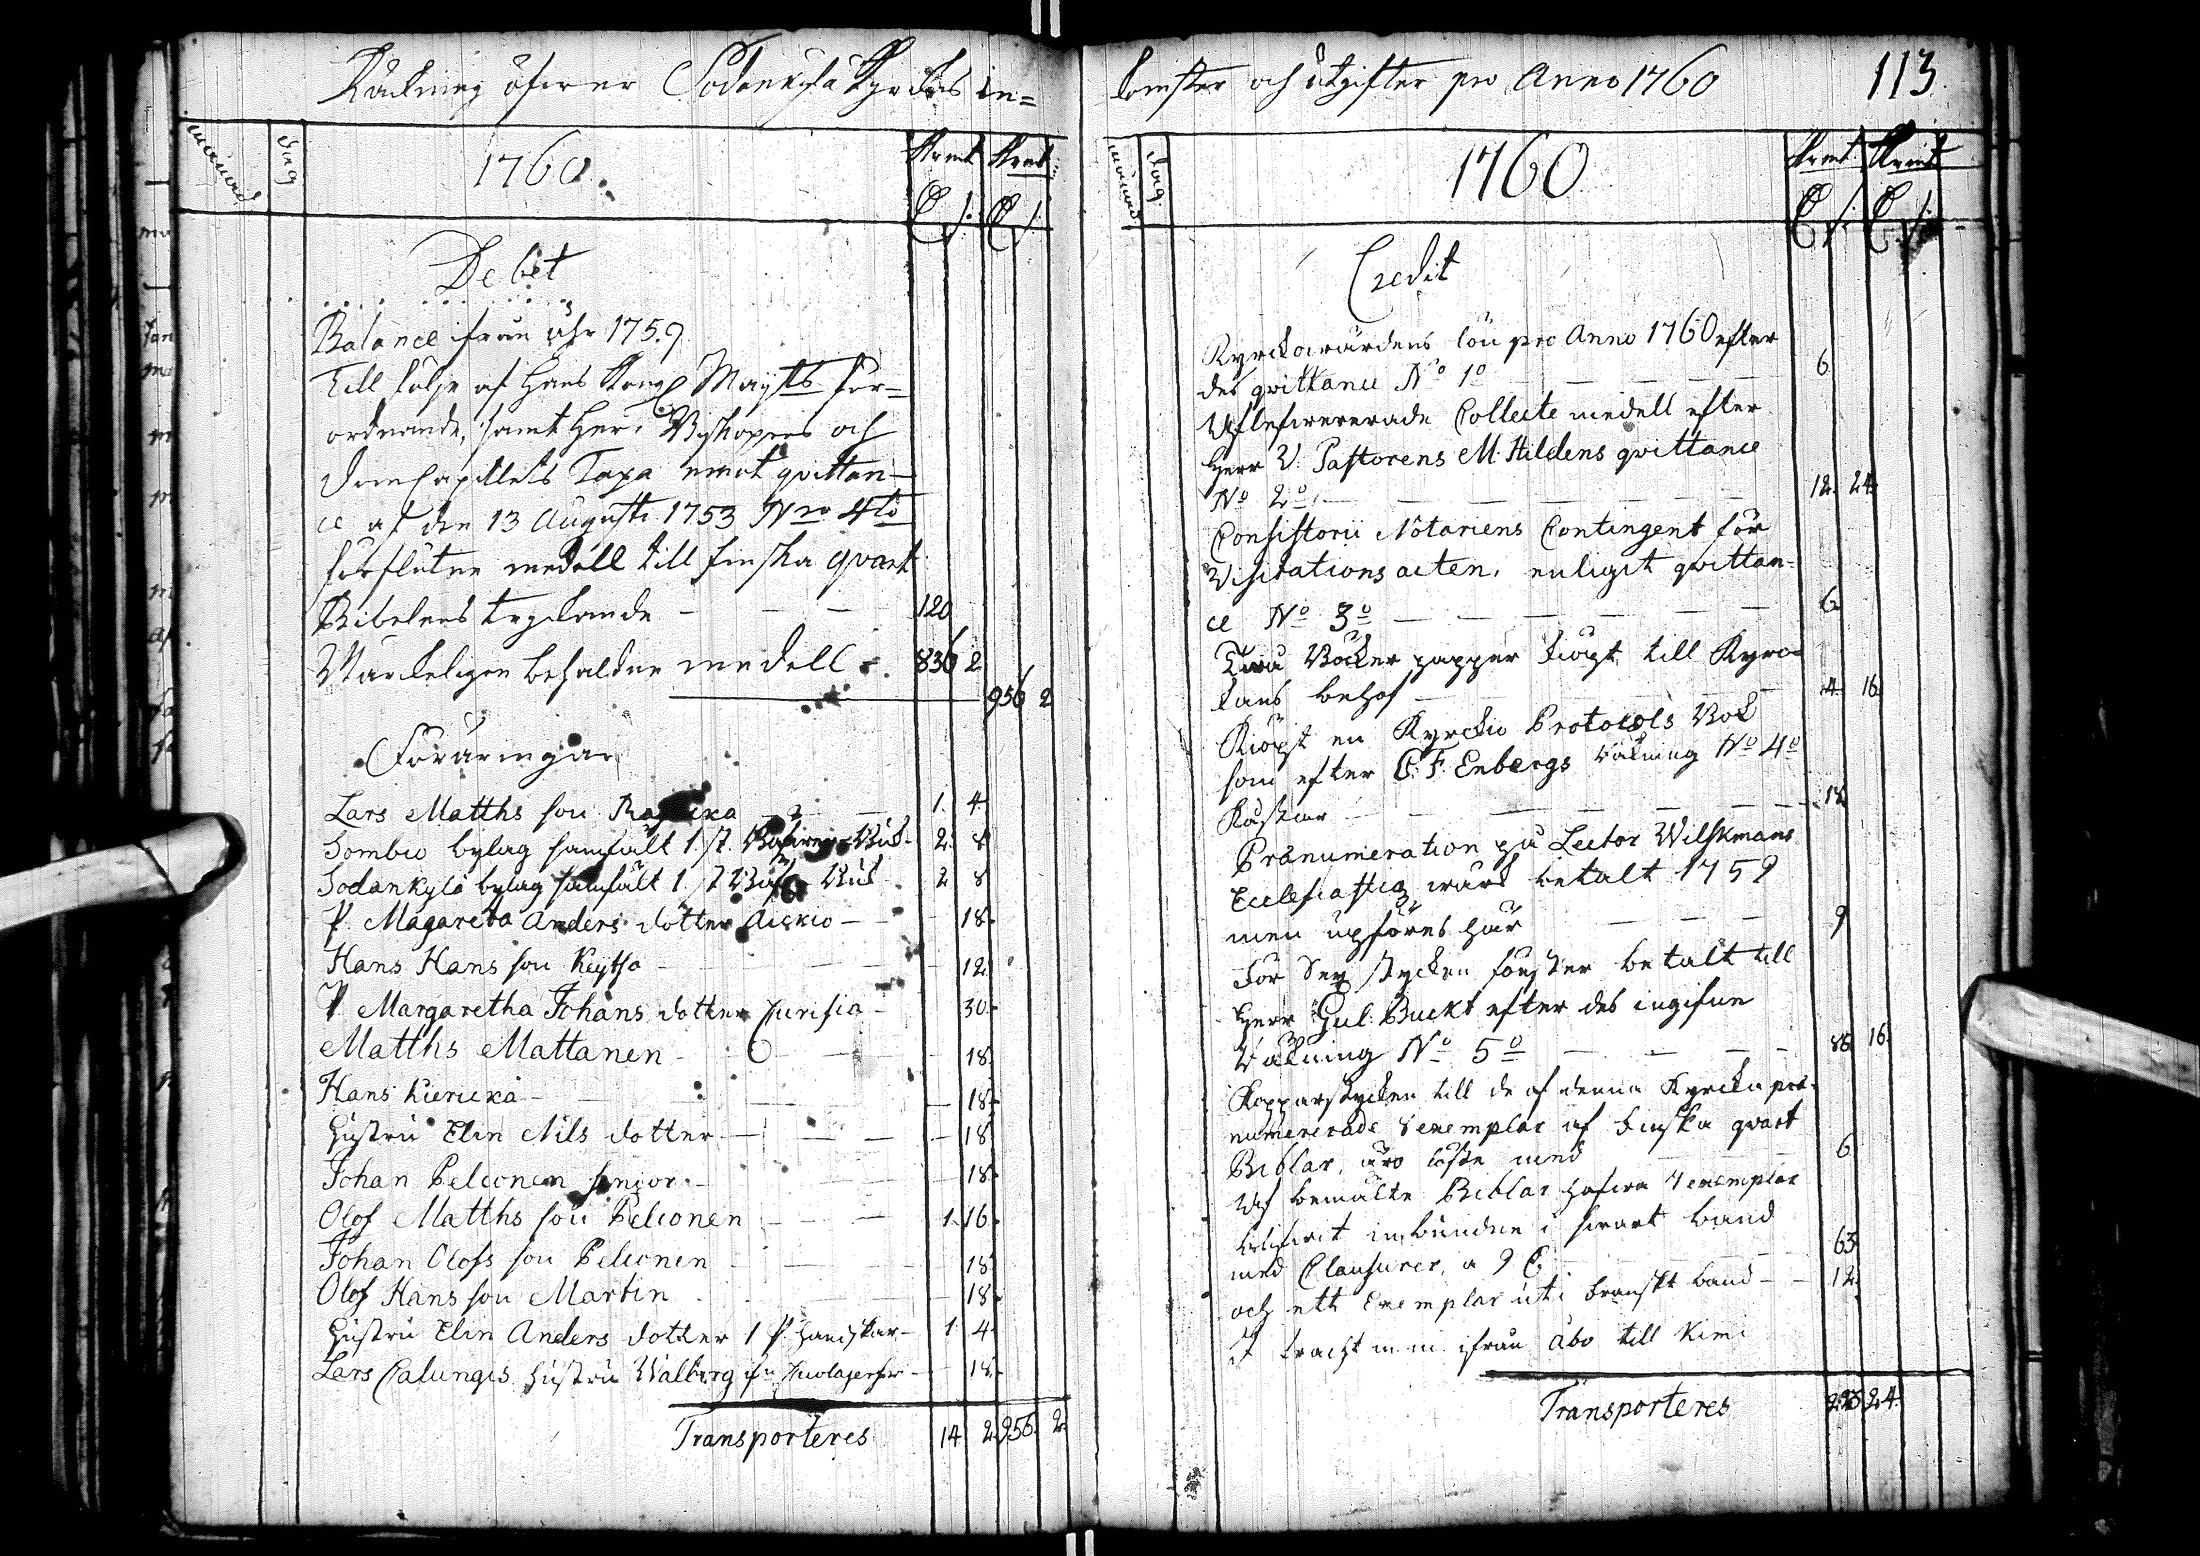 Räckning öfwer Sodenkyla Kyrckos in=
månad dag 1760. Kpmt Kpmt
Debet
Balance ifrån åhr 1759
Till följe af Hans Kongl Mayts för=
ordnande, samt Herr Biskopens och
DomCapitlets Taxa emot qvittan-
ce af den 13 Augusti 1753 Nro 4to
förflutne medell till finska qvart
Bibelens tryckande - - - 120
Wärckeligen behåldne medell. 836 2
956 2
Föräringar
Lars Matths son - 1. 4
Sombio bylag samfält 1. st. 2. 8
Sodankylä bylag samfält 1. st 2 8
P. Magareta Anders dotter Aickio - 18.
Hans Hans son Keytso - 12.
P. Margaretha Johans dotter Curisia - 30.
Matths Mattanen - 18.
Hans kiericka - 18.
Hustru Elin Nils dotter - 18
Johan Pelconen senior. - 18.
Olof Matths son Pelconen - 1. 16.
Johan Olofs son Pelconen - 18.
Olof Hans son Martin - 18.
Hustru Elin Anders dotter 1 P. handskar - 1. 4.
Lars Calungis hustru Walborg - 18.
Transporteres 14 2. 956. 2.
komster och utgifter pro Anno 1760 113
månad dag 1760 Kpmt Kpmt
Credit
Kyrckowärdens lön pro Anno 1760 efter
des qvittance No 1o - 6
Uflefwererade Collecte medell efter
Herr V. Pastorens M. Hildens qvittance
No 2o. - 12. 24.
Consistorii Notariens Contingent för
Visitations acten, enligit qvittan-
ce No 3o - 6
Twå Böcker papper kiöpt till Kyrc-
kans behof - 4. 16
Kiöpt en Kyrckio Protocols Bok
som efter C. F. Enbergs räkning No 4o
Kåstar - 18
Pränumeration på Lector Wilskmans
Ecclesiastiq wärck betalt 1759
men upföres här - 9
För Sex stycken fönster betalt till
Herr Gul. Buckt efter des ingifne
Räkning No 5o - 86 16.
Kopparstycken till de af denna Kyrcka præ-
numererade 8 exemplar af Finska qvart
Biblar, äro löste med - 6
Uf bemälte Biblar hafwa 7 exemplar
blifwit inbundne i swart band
med Clausurer, a 9 - 63
och ett Exemplar uti Franskt band - 12.
I fracht m m ifrån Åbo till Kimi
Transporteres 24.